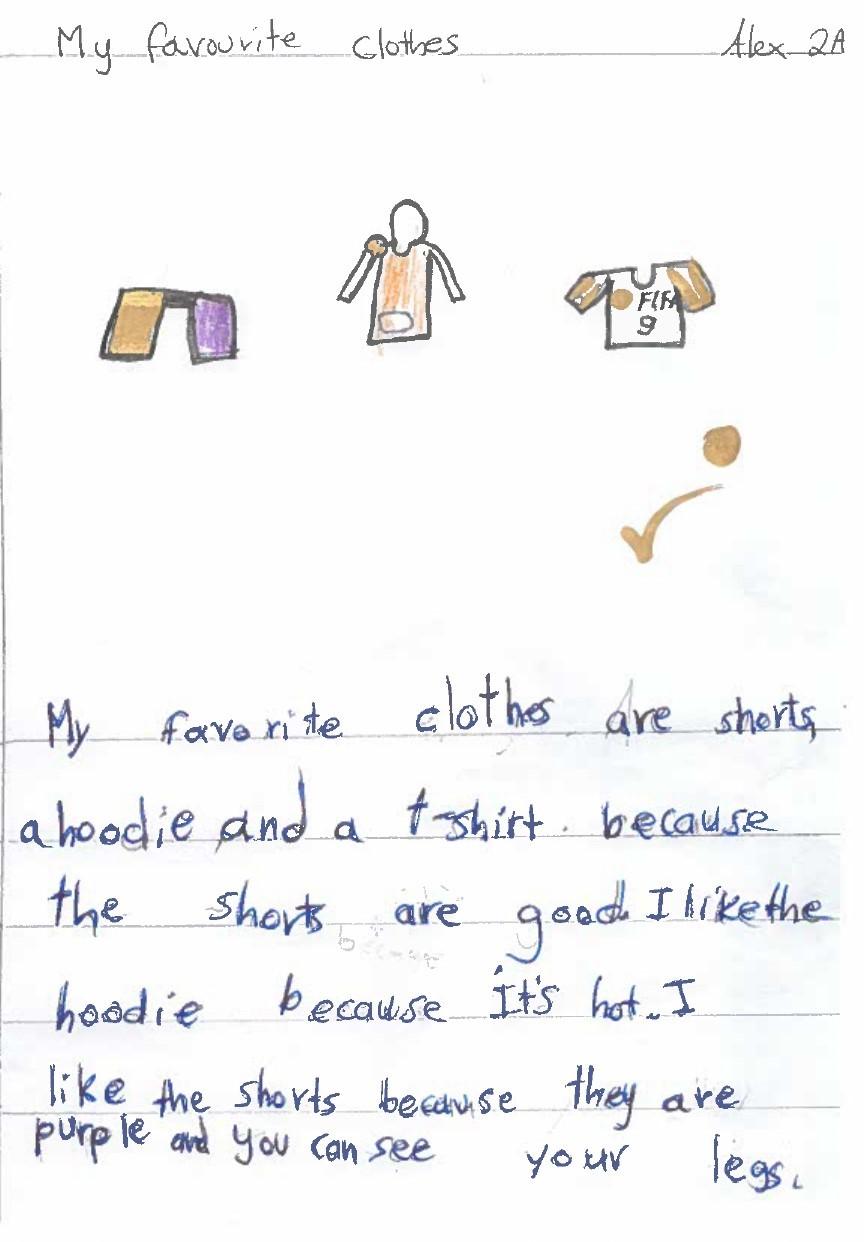 My favourite clothes Alex 2A
FIFA
9
My favorite clothes are shorts,
a hoodie and a t-shirt. because
the shorts are good. I like the
hoodie because it's hot. I
like the shorts because they are
purple and you can see your legs.